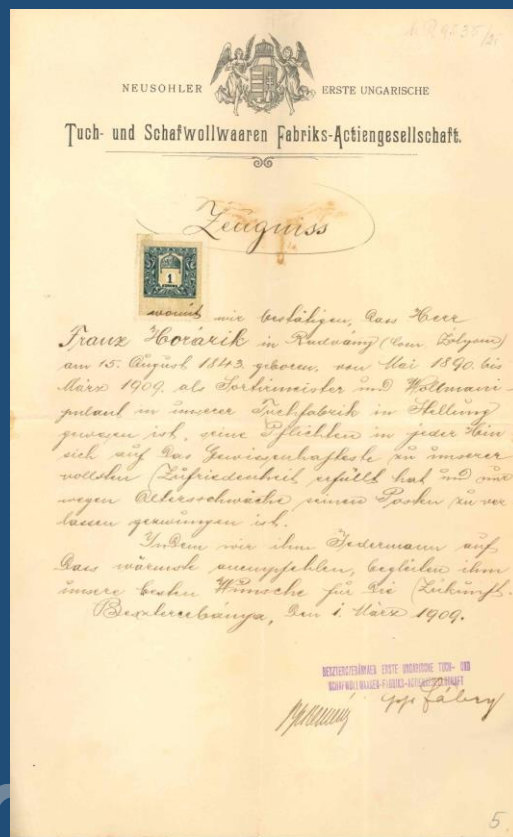 NEUSOHLER ERSTE UNGARISCHE
Tuch- und Schafwollwaaren Fabriks-Actiengesellschaft.
Zeugniss
1
womit wir bestätigen, dass Herr
Franz Horárik in Radvány (Com. Zólyom)
am 15. August 1843. geboren, von Mai 1890. bis
März 1909. als Sortirmeister und Wollmani-
pulant in unserer Tuchfabrik in Stellung
gewesen ist, seine Pflichten in jeder Hin
sich auf das Gewissenhafteste zu unserer
vollsten Zufriedenheit erfüllt hat und nur
wegen Altersschwäche seinen Posten zu ver
lassen gezwungen ist.
Indem wir ihm Jedermann auf
dass wärmste anempfehlen, begleiten ihm
unsere besten Wünsche für die Zukunft.
Beszterczebánya, den 1. März 1909.
BESZTERCZEBÁNYAER ERSTE UNGARISCHE TUCH- UND
SCHAFWOLLWAAREN-FABRIKS-ACTIENGESELLSCHAFT
pp Fábry
5.